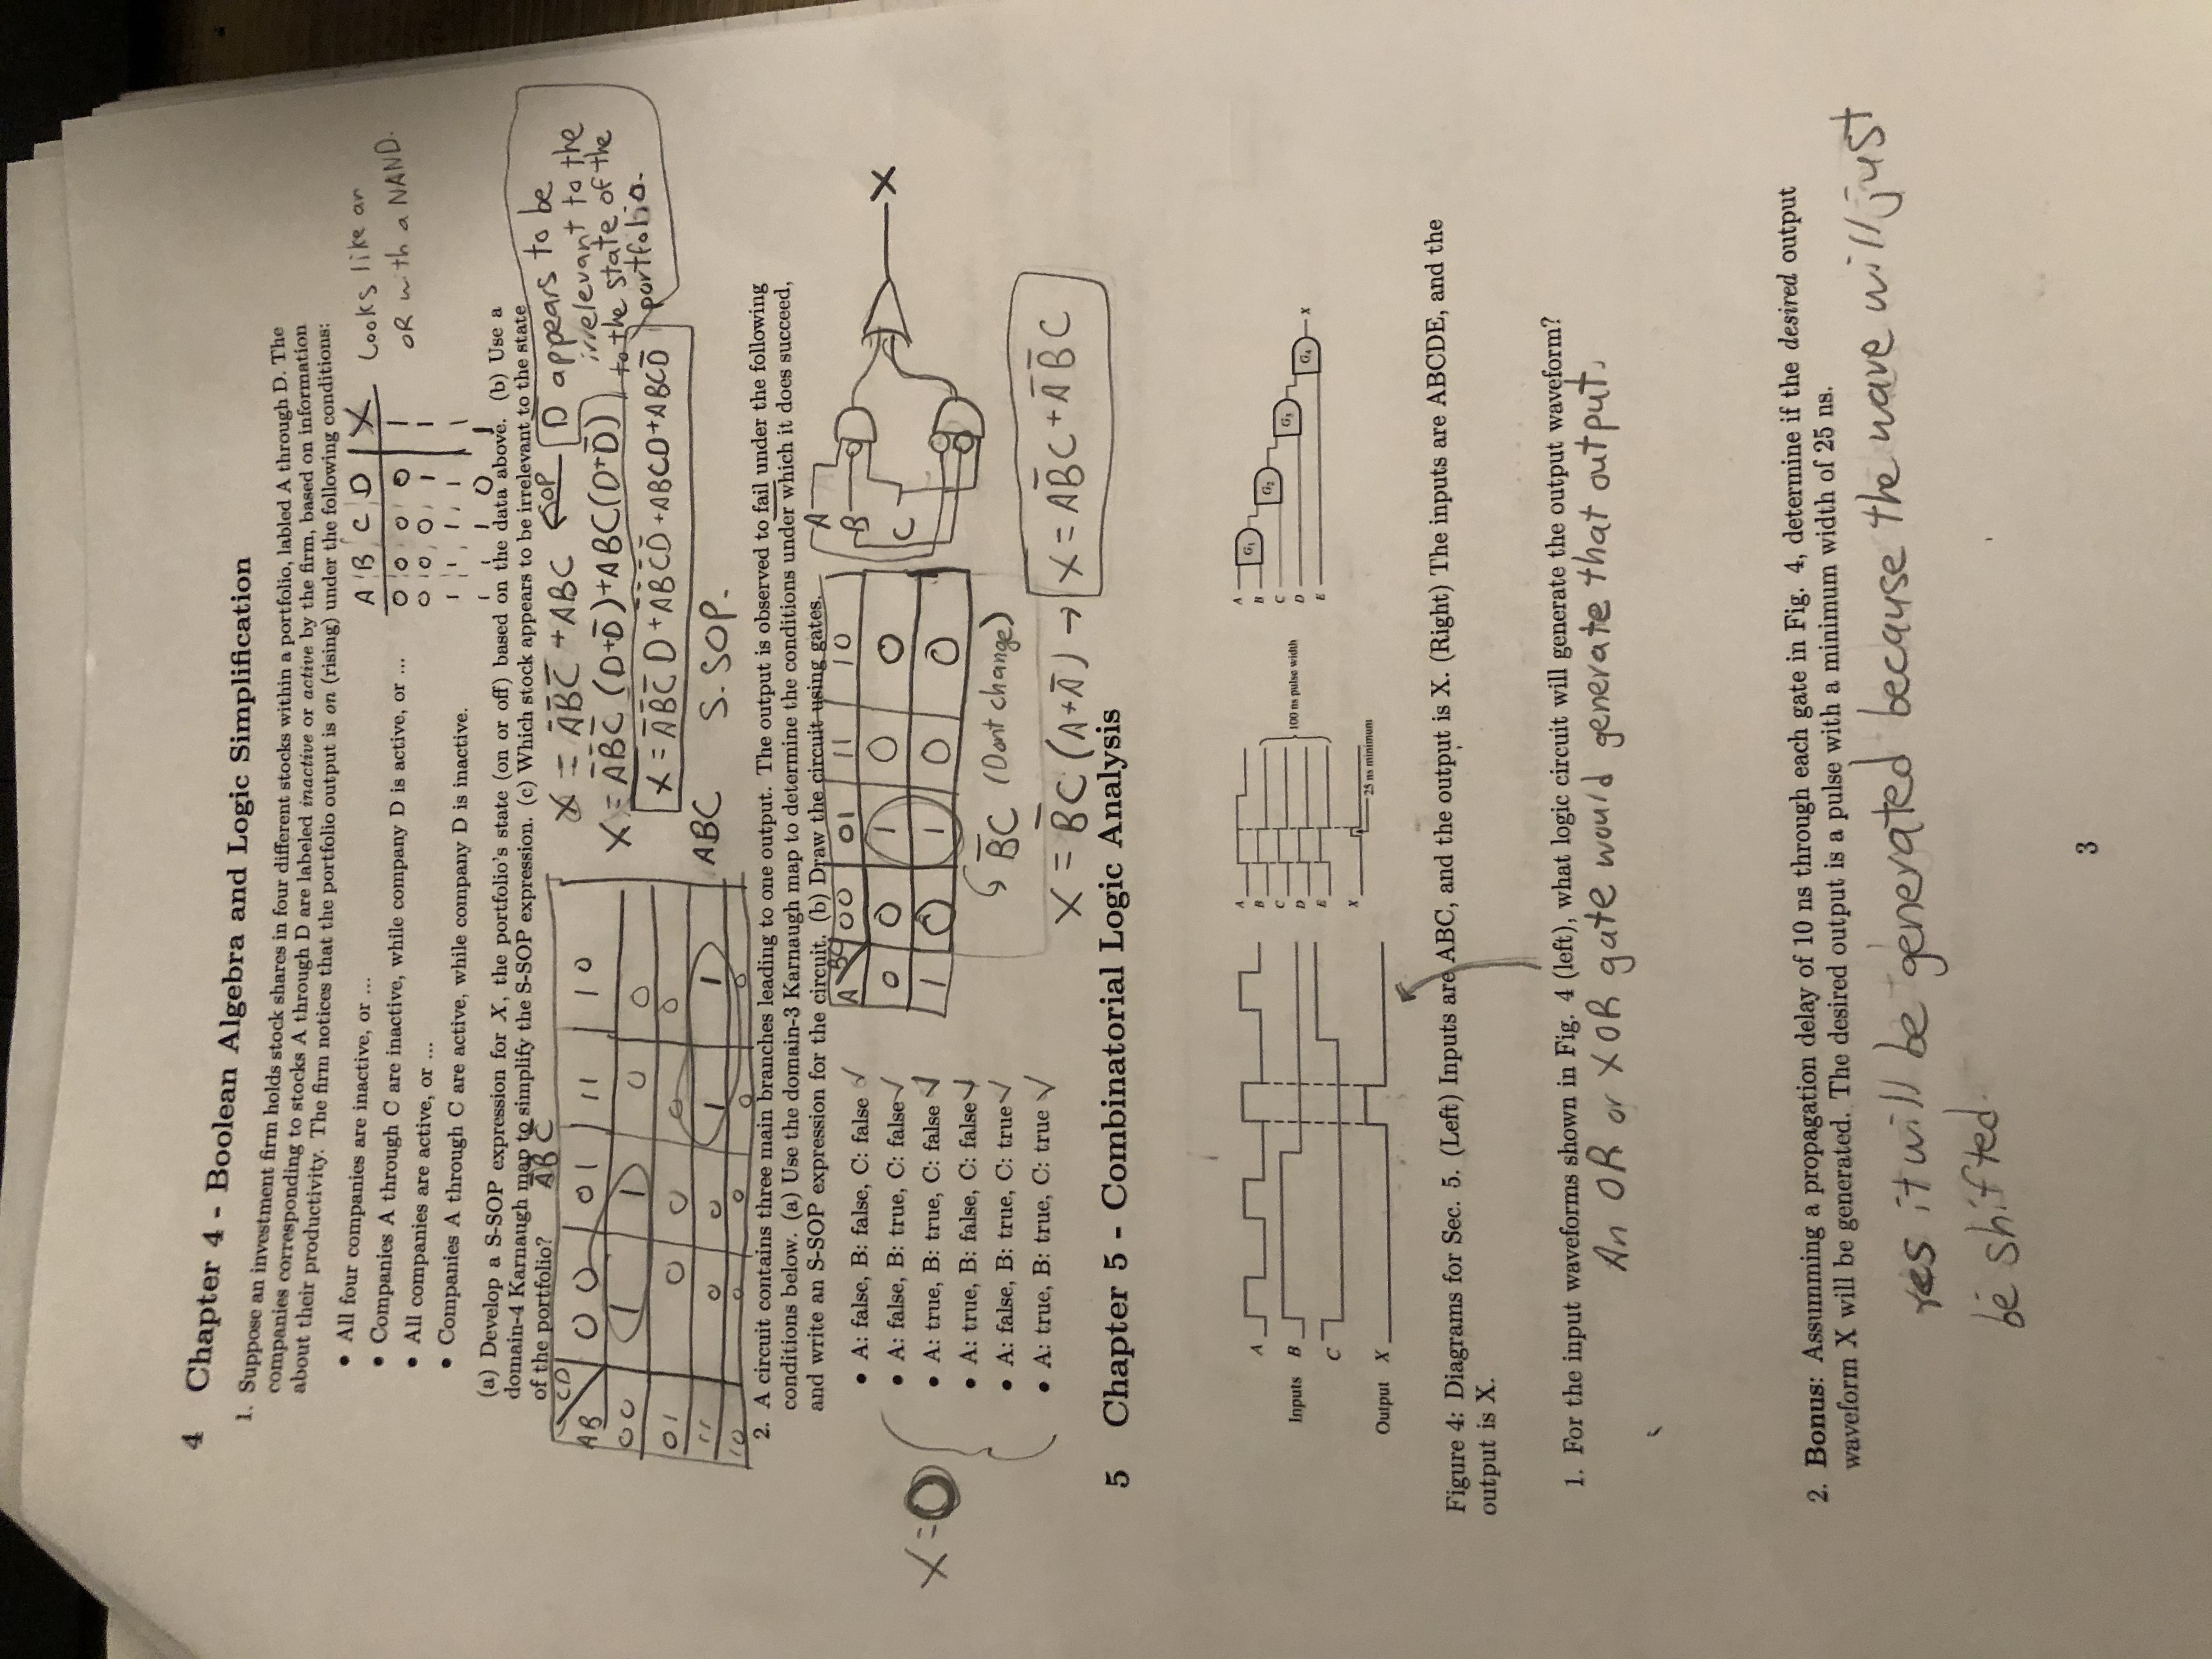 4 Chapter 4 - Boolean Algebra and Logic Simplification
1. Suppose an investment firm holds stock shares in four different stocks within a portfolio, labled A through D. The
companies corresponding to stocks A through D are labeled inactive or active by the firm, based on information
about their productivity. The firm notices that the portfolio output is on (rising) under the following conditions:
• All four companies are inactive, or ...
• Companies A through C are inactive, while company D is active, or ...
• All companies are active, or ...
• Companies A through C are active, while company D is inactive.
A B C D X
0 0 0 0 1
0 0 0 1 1
1 1 1 1 1
1 1 1 0 1
Looks like an
OR with a NAND.
(a) Develop a S-SOP expression for X, the portfolio's state (on or off) based on the data above. (b) Use a
domain-4 Karnaugh map to simplify the S-SOP expression. (c) Which stock appears to be irrelevant to the state
of the portfolio?
A̅B̅C̅
AB CD 00 01 11 10
00 1 1 0 0
01 0 0 0 0
11 0 0 1 1
10 0 0 0 0
ABC
X = A̅B̅C̅ + ABC ← SOP
X = A̅B̅C̅ (D+D̅) + ABC(D+D̅)
X = A̅B̅C̅D + A̅B̅C̅D̅ + ABCD + ABCD̅
S-SOP.
D appears to be
irrelevant to the
to the state of the
portfolio.
2. A circuit contains three main branches leading to one output. The output is observed to fail under the following
conditions below. (a) Use the domain-3 Karnaugh map to determine the conditions under which it does succeed,
and write an S-SOP expression for the circuit. (b) Draw the circuit using gates.
• A: false, B: false, C: false ✓
• A: false, B: true, C: false ✓
• A: true, B: true, C: false ✓
• A: true, B: false, C: false ✓
• A: false, B: true, C: true ✓
• A: true, B: true, C: true ✓
X=0
A BC 00 01 11 10
0 0 1 0 0
1 0 1 0 0
A
B
C
X
B̅C (Dont change)
X = B̅C (A+A̅) → X = AB̅C + A̅B̅C
5 Chapter 5 - Combinatorial Logic Analysis
A
Inputs B
C
Output X
A
B
C
D
E
X
100 ns pulse width
25 ns minimum
A
B
C
D
E
G1
G2
G3
G4
X
Figure 4: Diagrams for Sec. 5. (Left) Inputs are ABC, and the output is X. (Right) The inputs are ABCDE, and the
output is X.
1. For the input waveforms shown in Fig. 4 (left), what logic circuit will generate the output waveform?
An OR or XOR gate would generate that output.
2. Bonus: Assumming a propagation delay of 10 ns through each gate in Fig. 4, determine if the desired output
waveform X will be generated. The desired output is a pulse with a minimum width of 25 ns.
Yes it will be generated because the wave will just
be shifted.
3